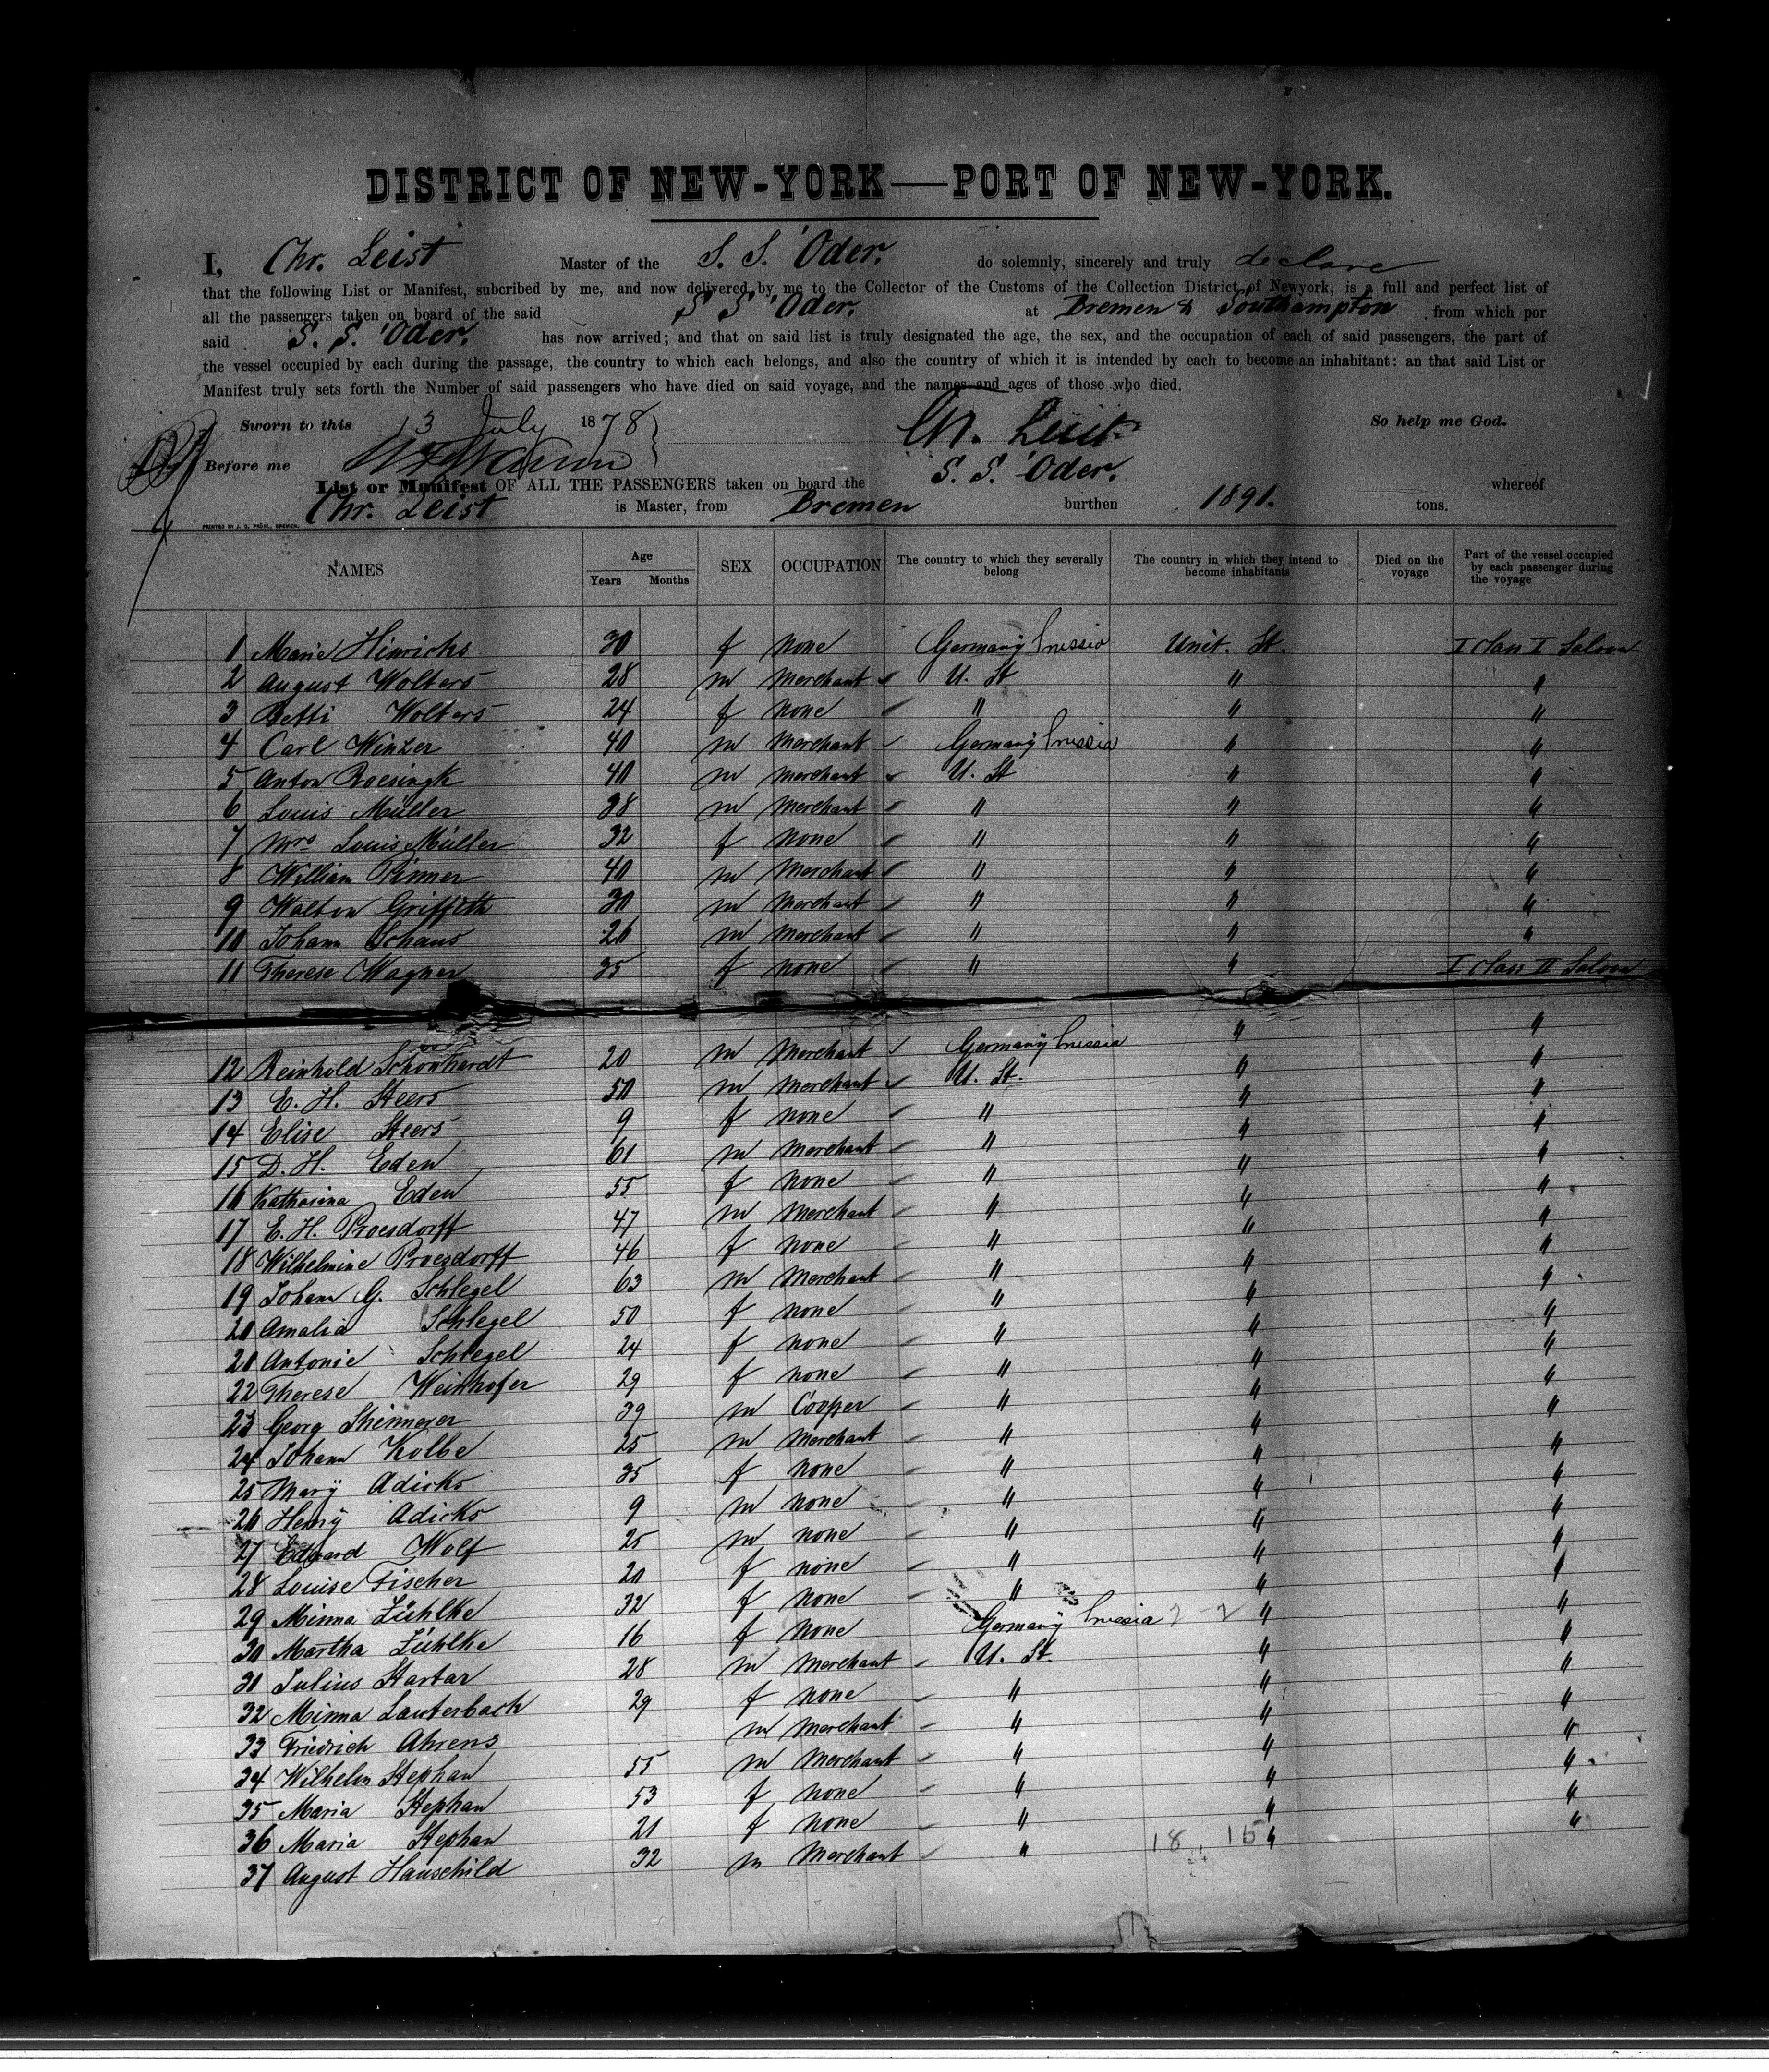 DISTRICT OF NEW-YORK—PORT OF NEW-YORK.
I, Chr. Leist Master of the S. S. 'Oder. do solemnly, sincerely and truly declare
that the following List or Manifest, subcribed by me, and now delivered by me to the Collector of the Customs of the Collection District of Newyork, is a full and perfect list of
all the passengers taken on board of the said S S 'Oder. at Bremen & Southampton from which por
said S. S. 'Oder. has now arrived; and that on said list is truly designated the age, the sex, and the occupation of each of said passengers, the part of
the vessel occupied by each during the passage, the country to which each belongs, and also the country of which it is intended by each to become an inhabitant: an that said List or
Manifest truly sets forth the Number of said passengers who have died on said voyage, and the names and ages of those who died.
Sworn to this 13 July 1878 Ch. Leist So help me God.
Before me
List or Manifest OF ALL THE PASSENGERS taken on board the S. S. 'Oder. whereof
Chr. Leist is Master, from Bremen burthen 1891. tons.
PRINTED BY J. G. PRÜHL, BREMEN.
NAMES Age Years Months SEX OCCUPATION The country to which they severally belong The country in which they intend to become inhabitants Died on the voyage Part of the vessel occupied by each passenger during the voyage
1 Marie Hinrichs 30 f none Germany Prussia Unit. St. I Class I Saloon
2 August Wolters 28 m Merchant U. St " "
3 Betti Wolters 24 f none " " "
4 Carl Winzer 40 m Merchant Germany Prussia " "
5 Anton Roesingk 40 m Merchant U. St " "
6 Louis Müller 38 m Merchant " " "
7 Mrs Louis Müller 32 f none " " "
8 William Pinner 40 m Merchant " " "
9 Walton Griffith 30 m Merchant " " "
10 Johann Schaus 26 m Merchant " " "
11 Therese Wagner 35 f none " " I Class II Saloon
12 Reinhold Schönhardt 20 m Merchant Germany Prussia " "
13 E. H. Steers 50 m Merchant U. St. " "
14 Elise Steers 9 f none " " "
15 D. H. Eden 61 m Merchant " " "
16 Katharina Eden 55 f none " " "
17 E. H. Proesdorff 47 m Merchant " " "
18 Wilhelmine Proesdorff 46 f none " " "
19 Johann G. Schlegel 63 m Merchant " " "
20 Amalia Schlegel 50 f none " " "
21 Antonie Schlegel 24 f none " " "
22 Therese Weinhofer 29 f none " " "
23 Georg Thirmeyer 39 m Cooper " " "
24 Johann Kolbe 25 m Merchant " " "
25 Mary Adicks 35 f none " " "
26 Henry Adicks 9 m none " " "
27 Eduard Wolf 25 m none " " "
28 Louise Fischer 20 f none " " "
29 Minna Zühlke 32 f none " " "
30 Martha Zühlke 16 f none Germany Prussia " "
31 Julius Startar 28 m Merchant U. St. " "
32 Minna Lauterbach 29 f none " " "
33 Friedrich Ahrens m Merchant " " "
34 Wilhelm Stephan 55 m Merchant " " "
35 Maria Stephan 53 f none " " "
36 Maria Stephan 21 f none " " "
37 August Hauschild 32 m Merchant " 18 15 " "